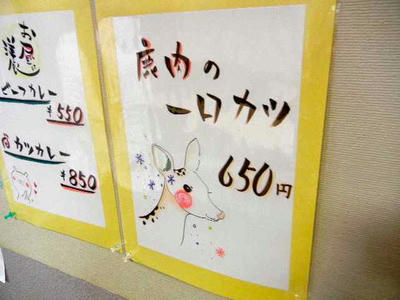 お昼は
洋風に
ビーフカレー
¥550
カツカレー
¥850
鹿肉の
一口カツ
650円